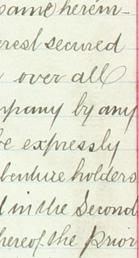 same herein-
erest secured
over all
mpany by any
be expressly
benture holders
d in the Second
hereof the Prior